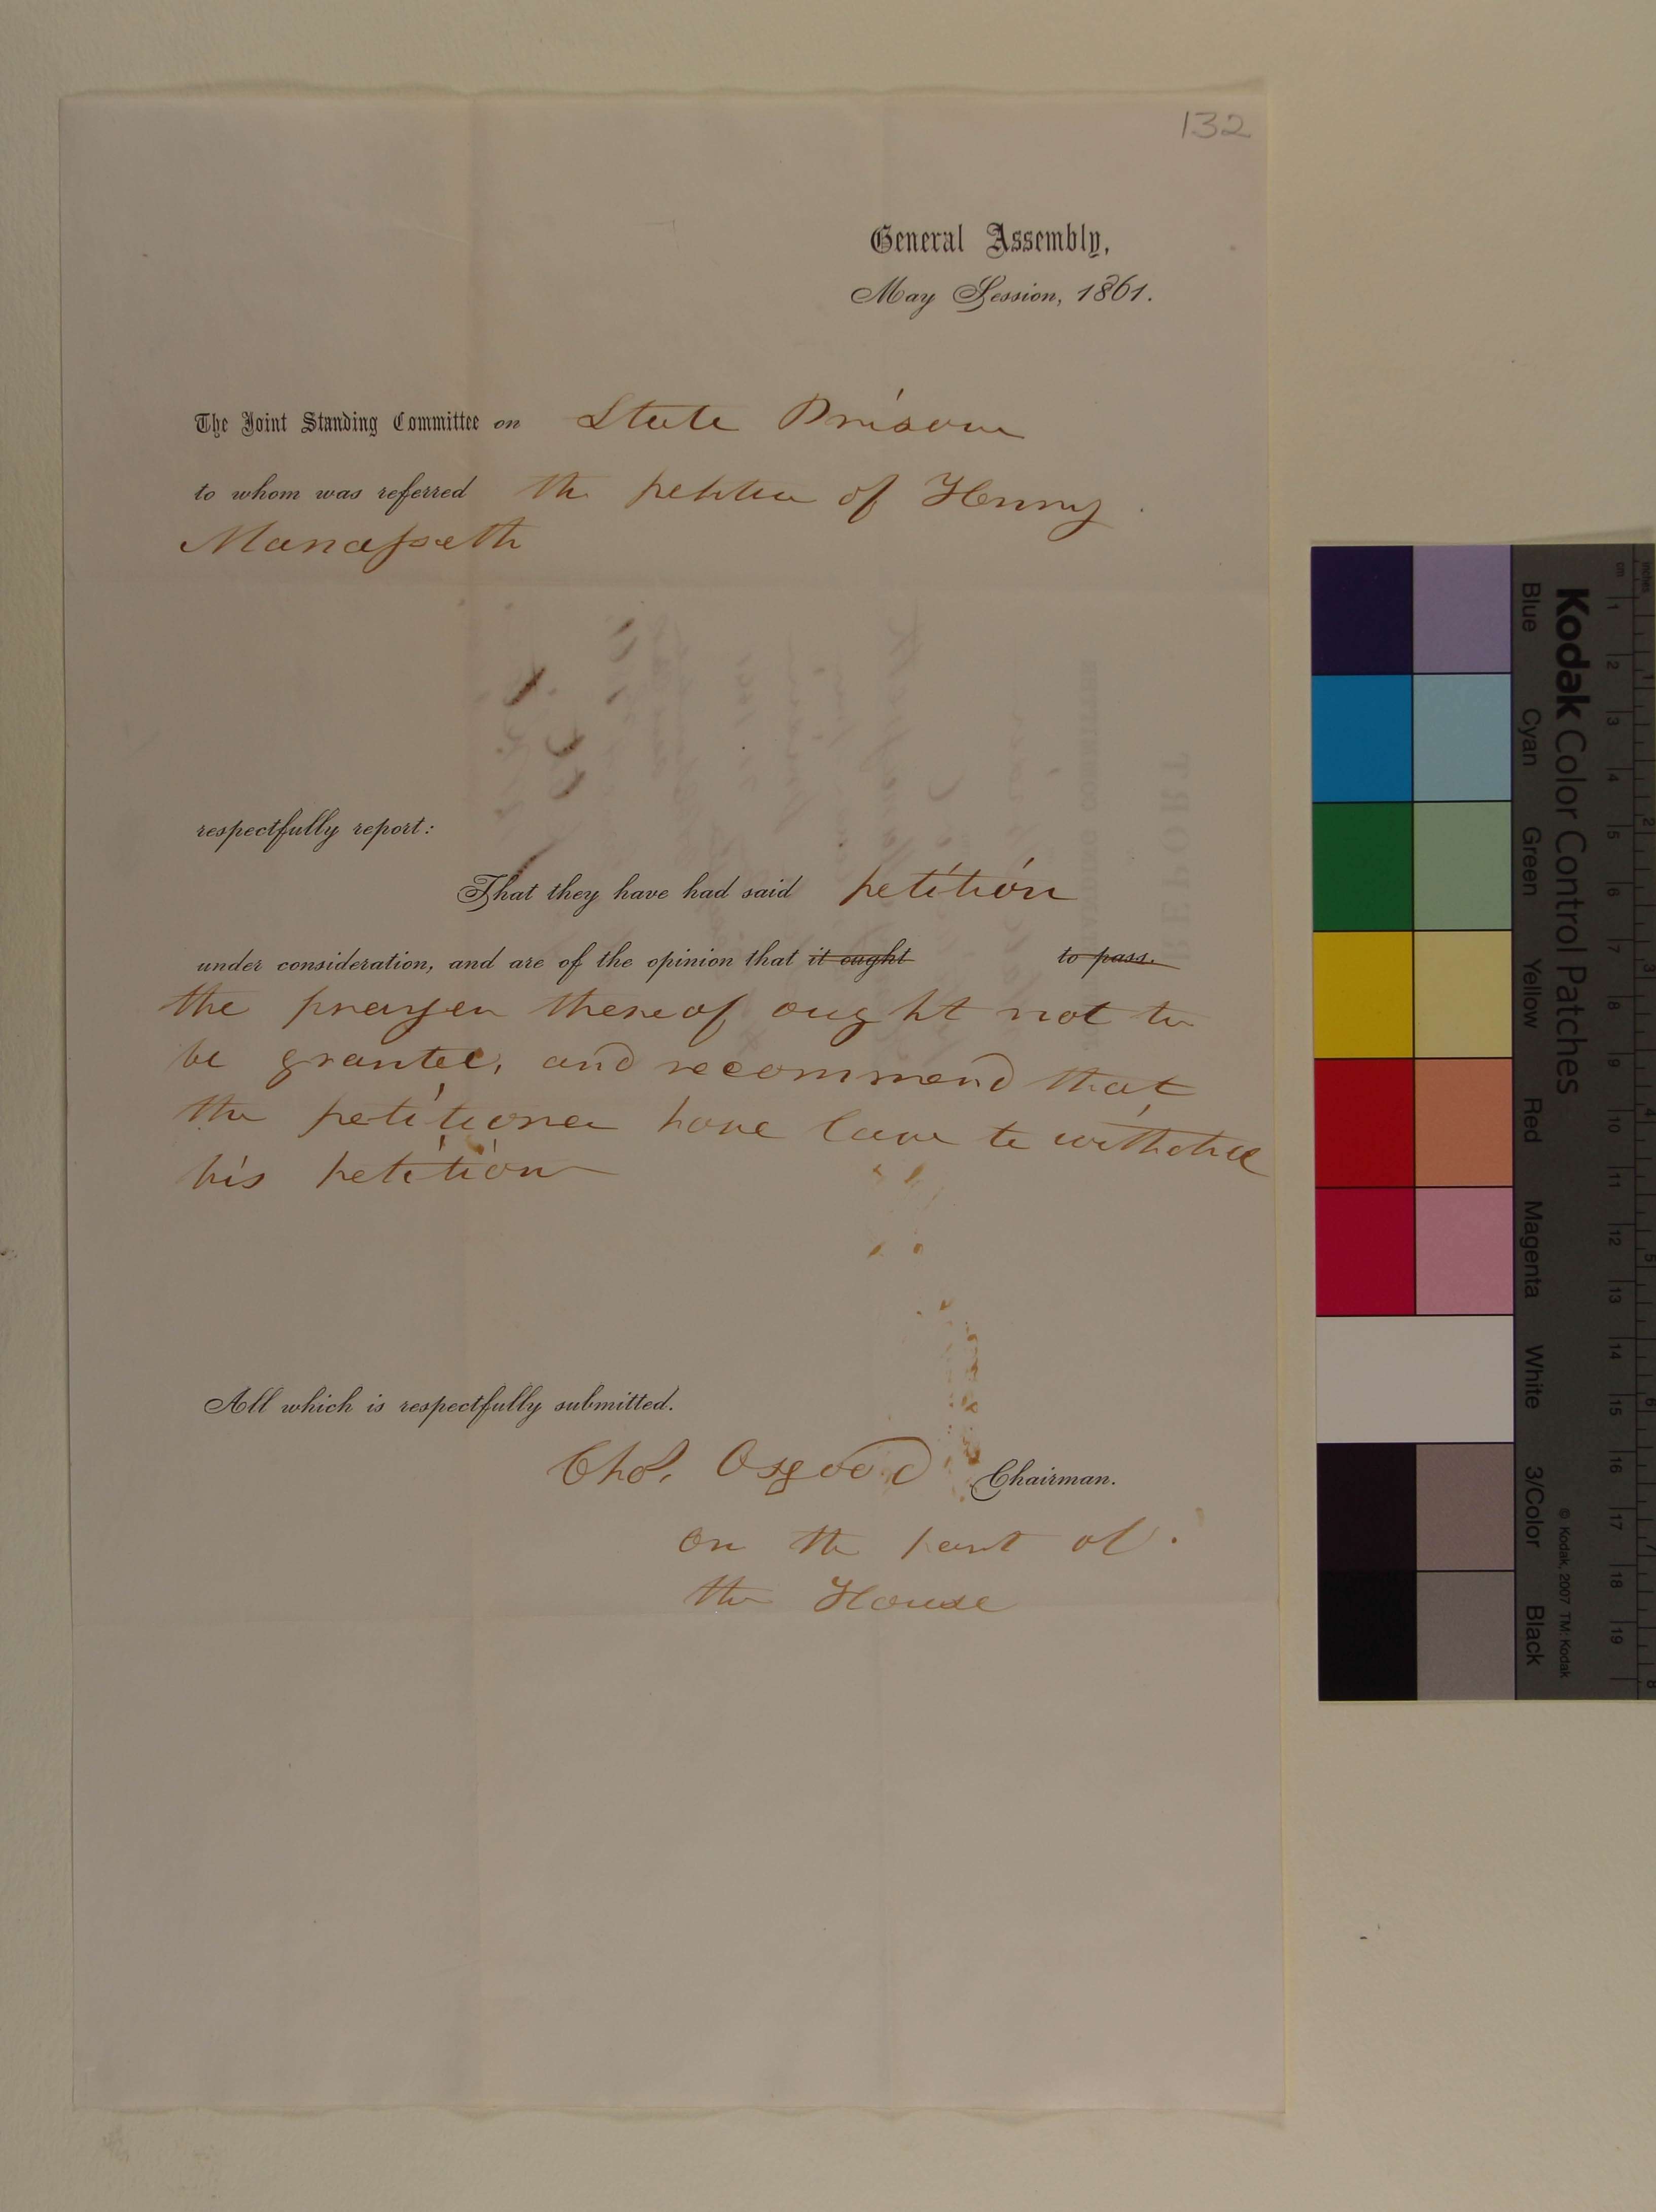 132
General Assembly,
May Session, 1861.
The Joint Standing Committee on State Prison
to whom was referred the petition of Henry
Manasseth
respectfully report:
That they have had said petition
under consideration, and are of the opinion that it ought to pass.
the prayer thereof ought not to
be granted, and recommend that
the petitioner have leave to withdraw
his petition
All which is respectfully submitted.
Chas. Osgood Chairman.
on the part of
the House
Kodak Color Control Patches
Blue Cyan Green Yellow Red Magenta White 3/Color Black
© Kodak, 2007 TM: Kodak
cm 1 2 3 4 5 6 7 8 9 10 11 12 13 14 15 16 17 18 19
inches 1 2 3 4 5 6 7 8